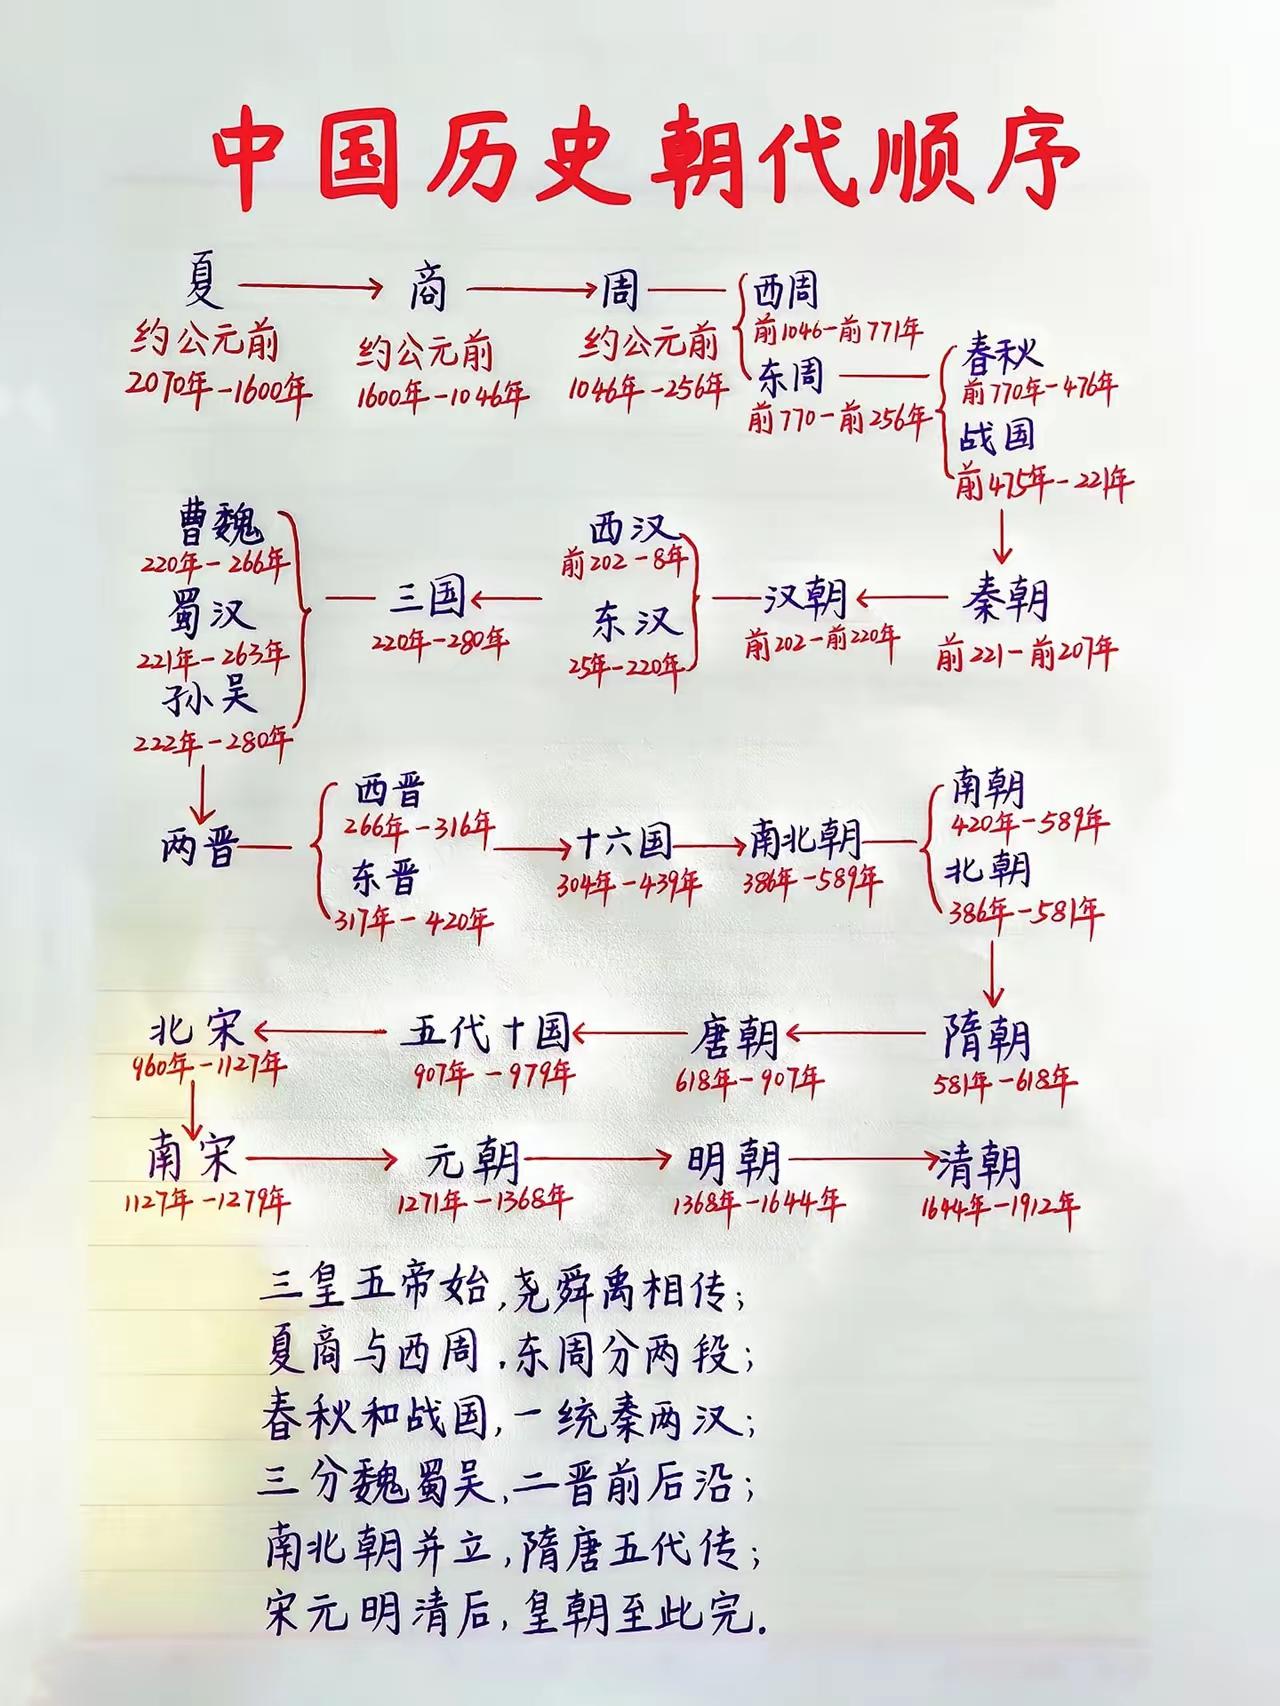 中国历史朝代顺序
夏 商 周 西周
约公元前 约公元前 约公元前 前1046-前771年
2070年-1600年 1600年-1046年 1046年-256年
东周
前770-前256年
春秋
前770年-476年
战国
前475年-221年
秦朝
前221-前207年
汉朝
前202-前220年
西汉
前202-8年
东汉
25年-220年
三国
220年-280年
曹魏
220年-266年
蜀汉
221年-263年
孙吴
222年-280年
两晋
西晋
266年-316年
东晋
317年-420年
十六国
304年-439年
南北朝
386年-589年
南朝
420年-589年
北朝
386年-581年
隋朝
581年-618年
唐朝
618年-907年
五代十国
907年-979年
北宋
960年-1127年
南宋
1127年-1279年
元朝
1271年-1368年
明朝
1368年-1644年
清朝
1644年-1912年
三皇五帝始,尧舜禹相传;
夏商与西周,东周分两段;
春秋和战国,一统秦两汉;
三分魏蜀吴,二晋前后沿;
南北朝并立,隋唐五代传;
宋元明清后,皇朝至此完.